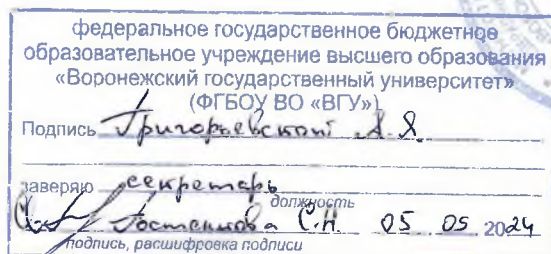 федеральное государственное бюджетное
образовательное учреждение высшего образования
«Воронежский государственный университет»
(ФГБОУ ВО «ВГУ»)
Подпись Григорьевской А.Я.
заверяю секретарь
должность
С.Н. 05 05 2024
подпись, расшифровка подписи